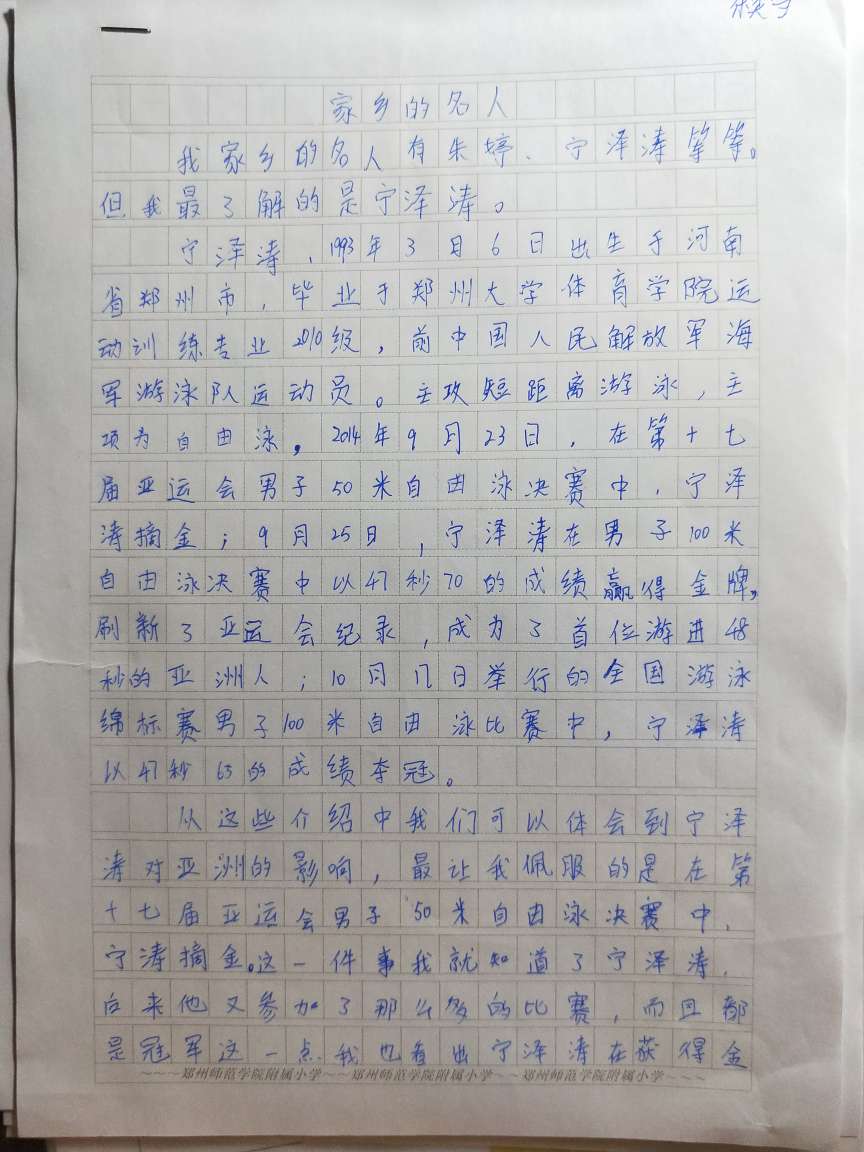 家乡的名人
我家乡的名人有朱婷、宁泽涛等等。
但我最了解的是宁泽涛。
宁泽涛，1993年3月6日出生于河南
省郑州市，毕业于郑州大学体育学院运
动训练专业2010级，前中国人民解放军海
军游泳队运动员。主攻短距离游泳，主
项为自由泳，2014年9月23日，在第十七
届亚运会男子50米自由泳决赛中，宁泽
涛摘金；9月25日，宁泽涛在男子100米
自由泳决赛中以47秒70的成绩赢得金牌，
刷新了亚运会纪录，成为了首位游进48
秒的亚洲人；10月17日举行的全国游泳
锦标赛男子100米自由泳比赛中，宁泽涛
以47秒65的成绩夺冠。
从这些介绍中我们可以体会到宁泽
涛对亚洲的影响，最让我佩服的是在第
十七届亚运会男子50米自由泳决赛中，
宁涛摘金。这一件事我就知道了宁泽涛，
后来他又参加了那么多的比赛，而且都
是冠军这一点我也看出宁泽涛在获得金
~~~郑州师范学院附属小学~~~郑州师范学院附属小学~~郑州师范学院附属小学~~~